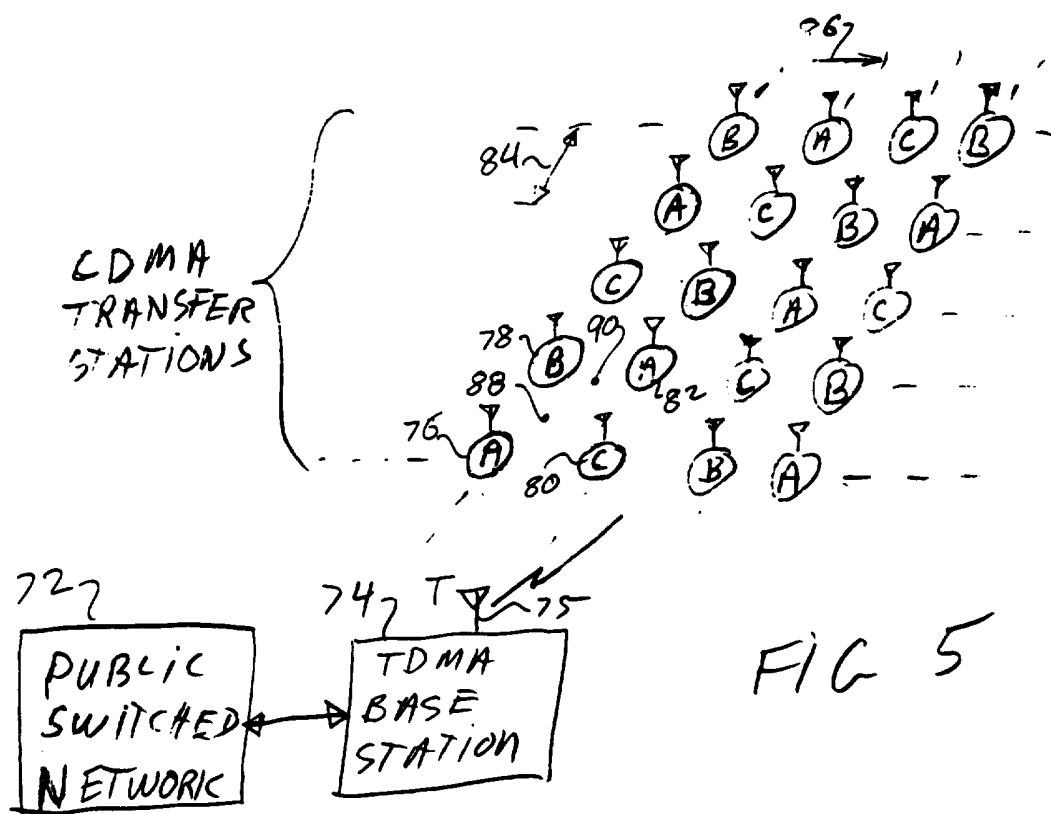 B A C B
84
A C B A
CDMA
TRANSFER
STATIONS
C B A C
78 B 90 A 82 C B
88
76 A 80 C B A
72
74 T 75
PUBLIC
SWITCHED
NETWORK
TDMA
BASE
STATION
FIG 5